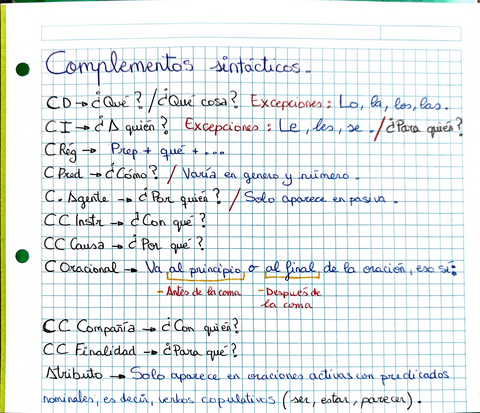 Complementos sintácticos.
CD → ¿Qué? / ¿Qué cosa? Excepciones: Lo, la, los, las.
CI → ¿A quién? Excepciones: Le, les, se. / ¿Para quién?
C Rég → Prep + qué + ...
C Pred → ¿Cómo? / Varía en genero y número.
C. Agente → ¿Por quién? / Solo aparece en pasiva.
CC Instr → ¿Con qué?
CC Causa → ¿Por qué?
C Oracional → Va al principio o al final de la oración, eso sí:
- Antes de la coma - Después de
la coma
CC Compañía → ¿Con quién?
CC Finalidad → ¿Para qué?
Atributo → Solo aparece en oraciones activas con predicados
nominales, es decir, verbos copulativos (ser, estar, parecer).